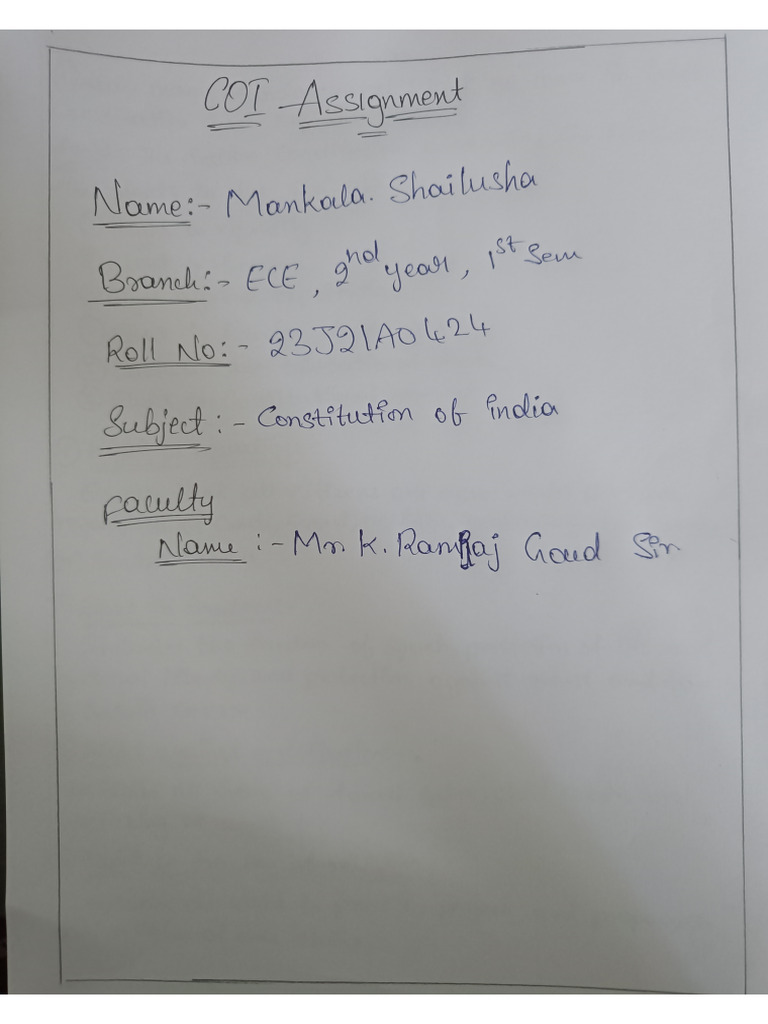 COI Assignment
Name:- Mankala. Shailusha
Branch:- ECE, 2nd year, 1st Sem
Roll No:- 23J21A0424
Subject:- Constitution of india
faculty
Name:- Mr. K. RamRaj Goud Sir